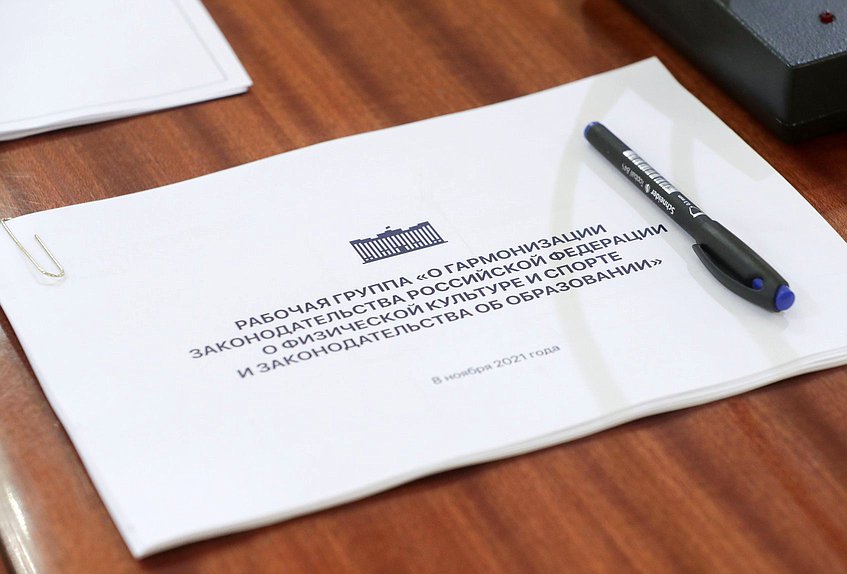 РАБОЧАЯ ГРУППА «О ГАРМОНИЗАЦИИ
ЗАКОНОДАТЕЛЬСТВА РОССИЙСКОЙ ФЕДЕРАЦИИ
О ФИЗИЧЕСКОЙ КУЛЬТУРЕ И СПОРТЕ
И ЗАКОНОДАТЕЛЬСТВА ОБ ОБРАЗОВАНИИ»
8 ноября 2021 года
Schneider